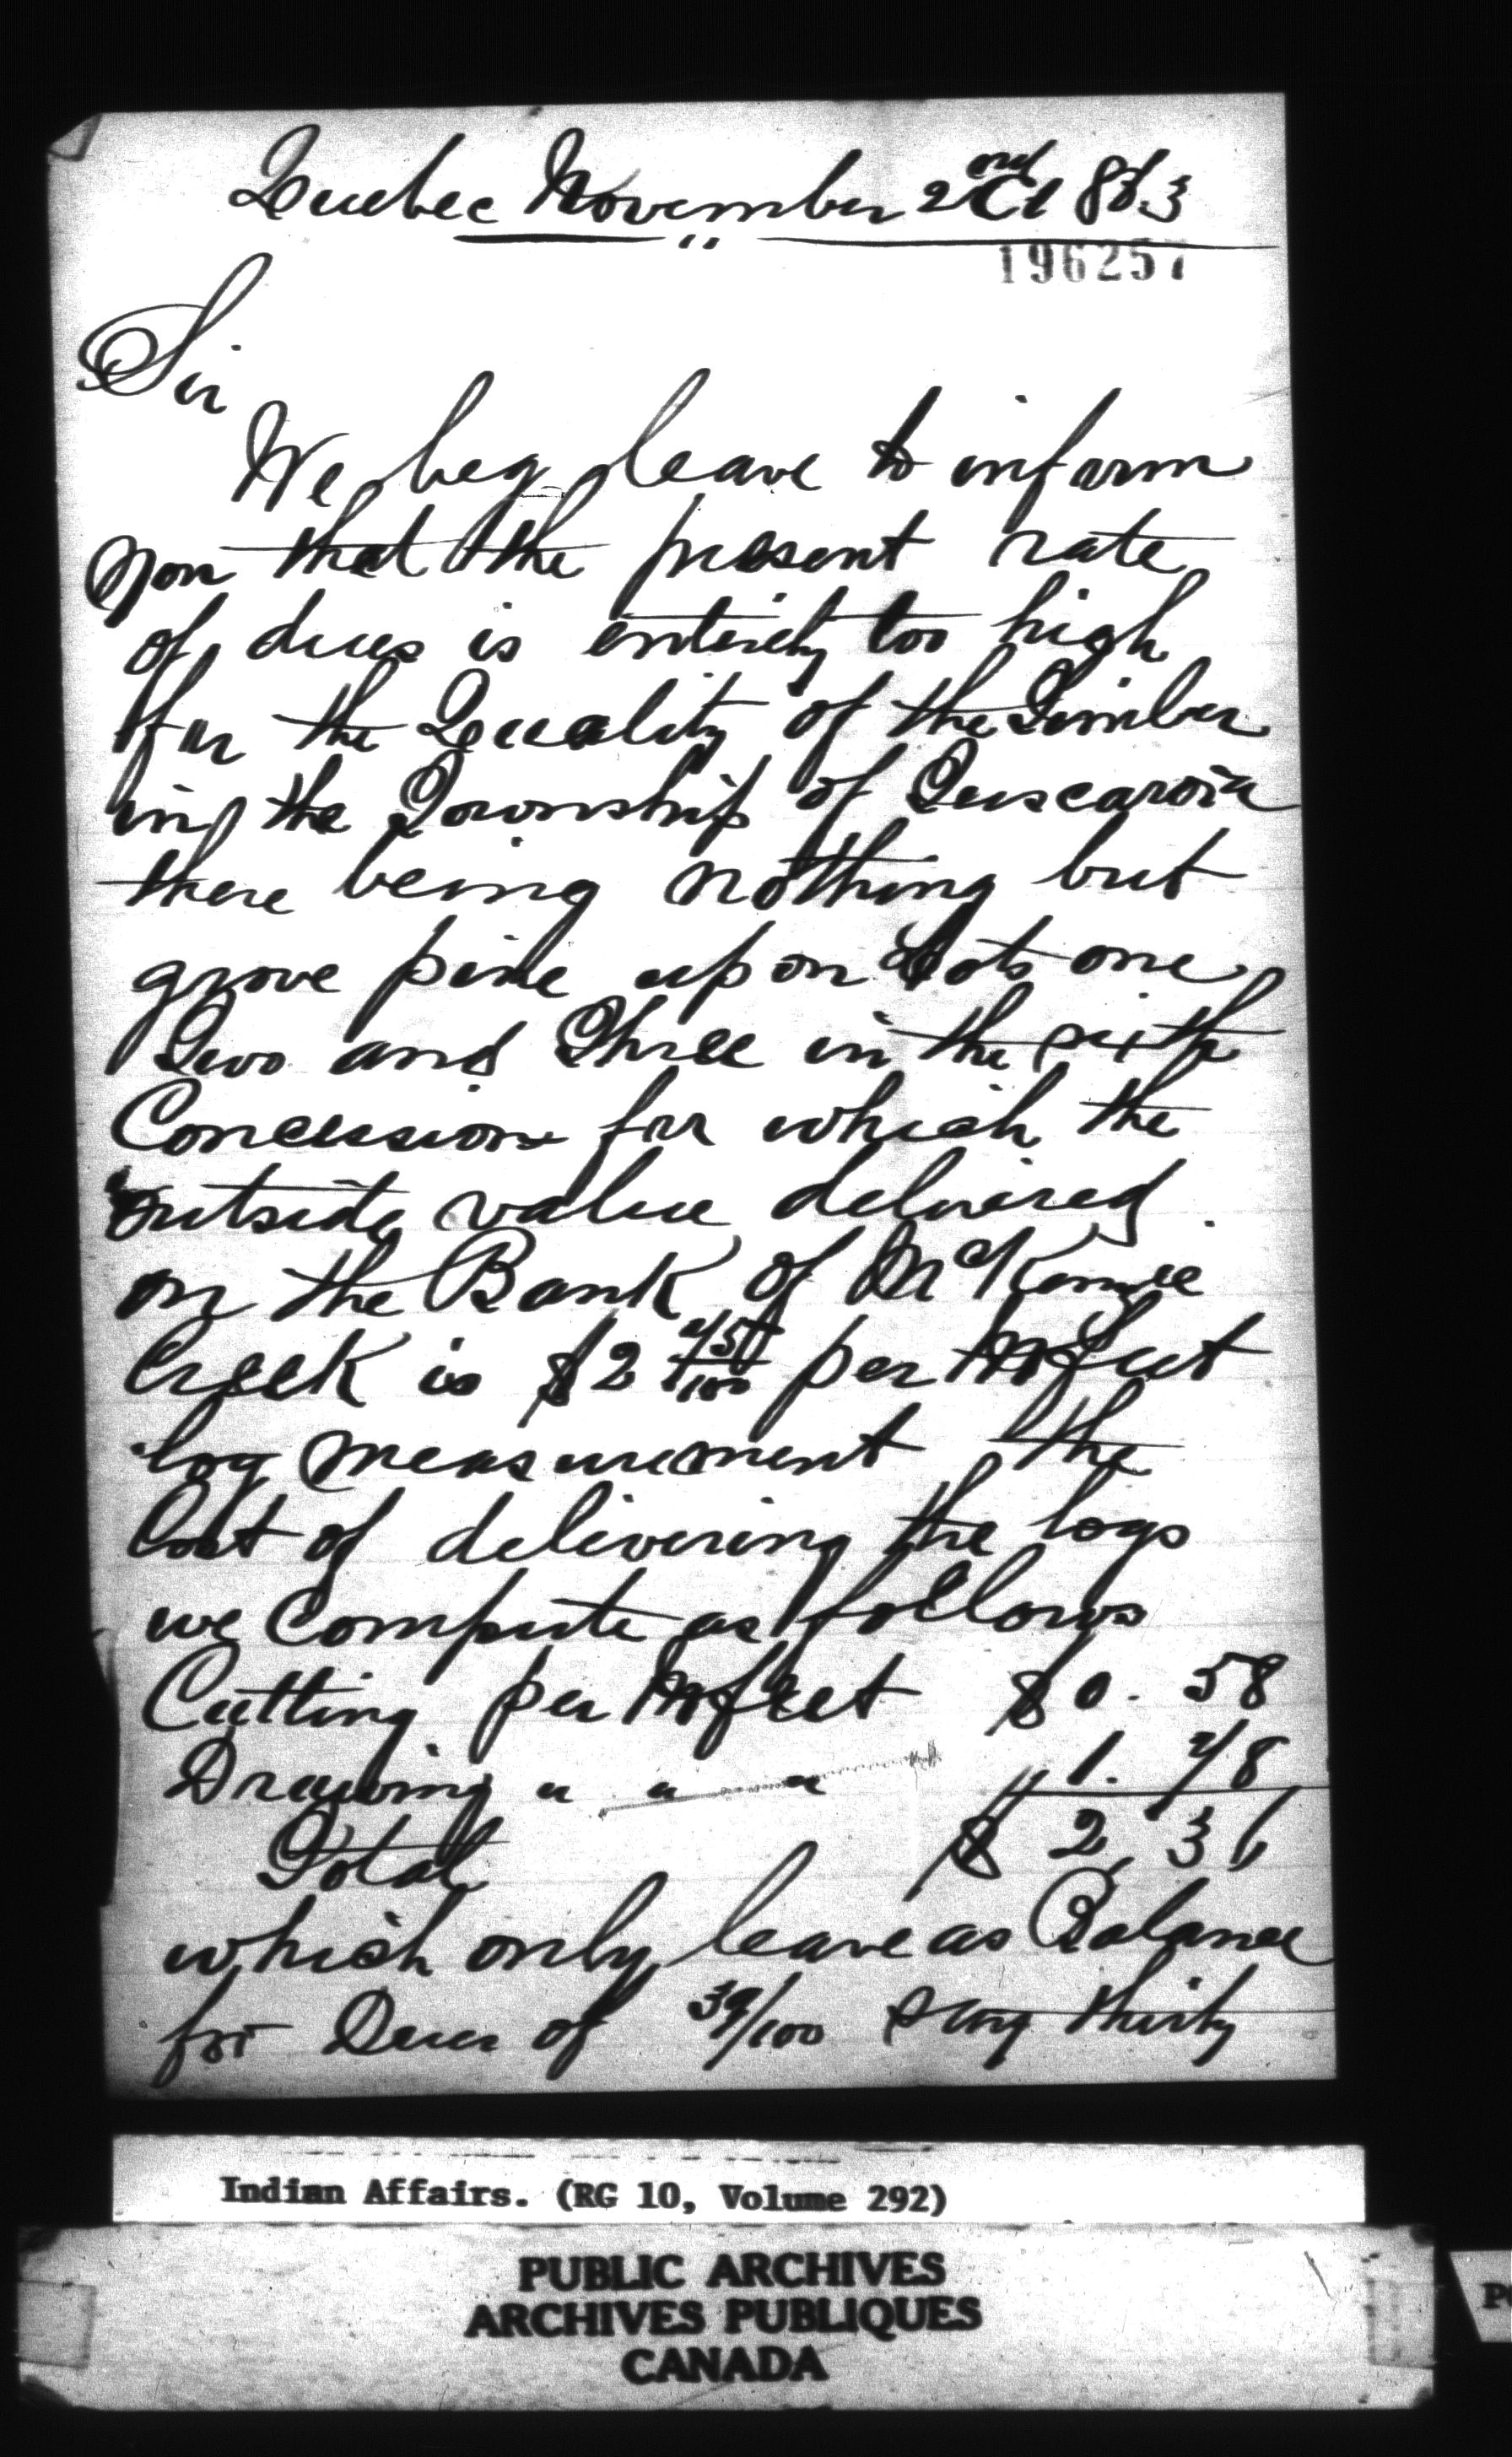 Quebec November 2nd 1863
196257
Sir
We beg leave to inform
you that the present rate
of dues is entirely too high
for the Quality of the Timber
in the Township of Tuscarora
there being nothing but
grove pine upon Lots one
Two and Three in the sixth
Concession for which the
outside value delivered
on the Bank of McKenzie
Creek is $2 75/100 per M feet
log measurement the
Cost of delivering the logs
we Compute as follows
Cutting per M feet $0.58
Drawing " " " " 1.78
Total $ 2,36
which only leave as Balance
for Dues of 39/100 say thirty
Indian Affairs. (RG 10, Volume 292)
PUBLIC ARCHIVES
ARCHIVES PUBLIQUES
CANADA